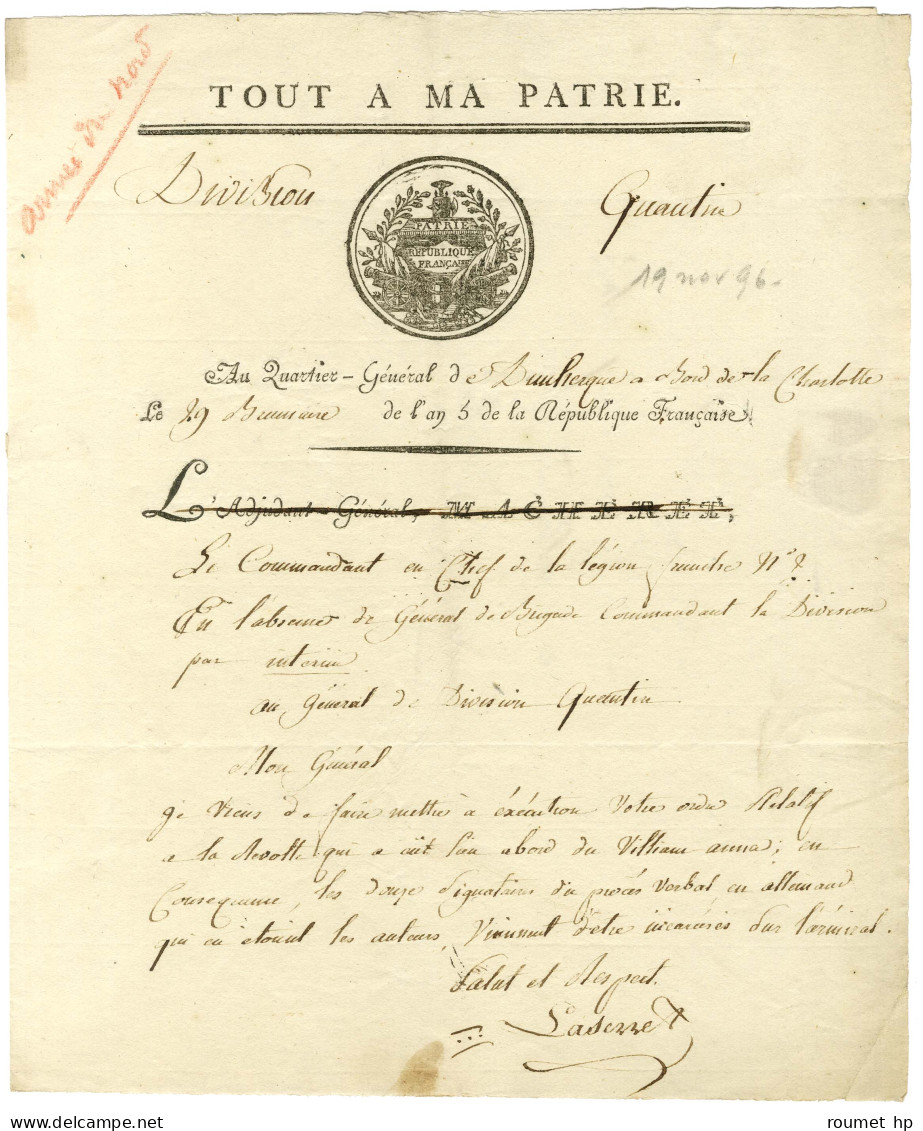 armée du nord
TOUT A MA PATRIE.
Division Quantin
PATRIE
RÉPUBLIQUE
FRANÇAISE
19 nov 96.
Au Quartier-Général de Dunkerque a Bord de la Charlotte
Le 29 Brumaire de l'an 5 de la République Française.
L'Adjudant-Général, MACHERET,
Le Commandant en Chef de la légion franche N°
En l'absence de Général de Brigade Commandant la Division
par interim
au Général de Division Quantin
Mon Général
je viens de faire mettre a éxécution votre ordre Relatif
a la Revolte qui a eût lieu abord du Villiam anna; en
Consequence, les douze Signataires du procès verbal en allemand
qui en etoient les auteurs, Viennent d'etre incarcérés sur l'amiral.
Salut et Respect.
Laserre
roumet hp